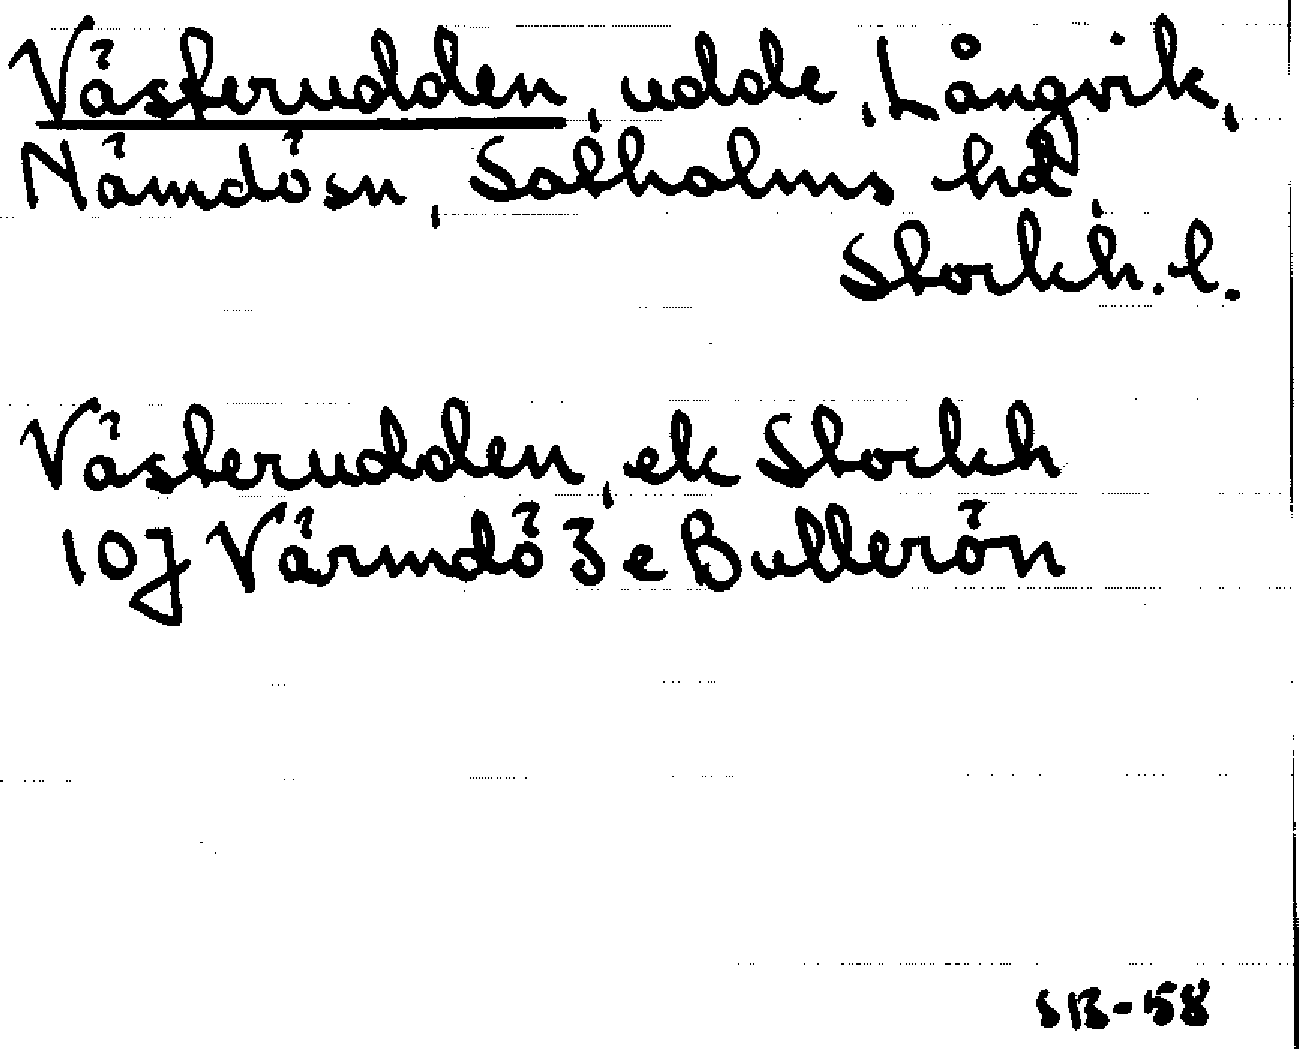 Västerudden, udde, Långvik,
Nämdö sn, Sotholms hd,
Stockh. l.
Västerudden, ek Stockh
10J Värmdö 3e Bullerön
SB-58